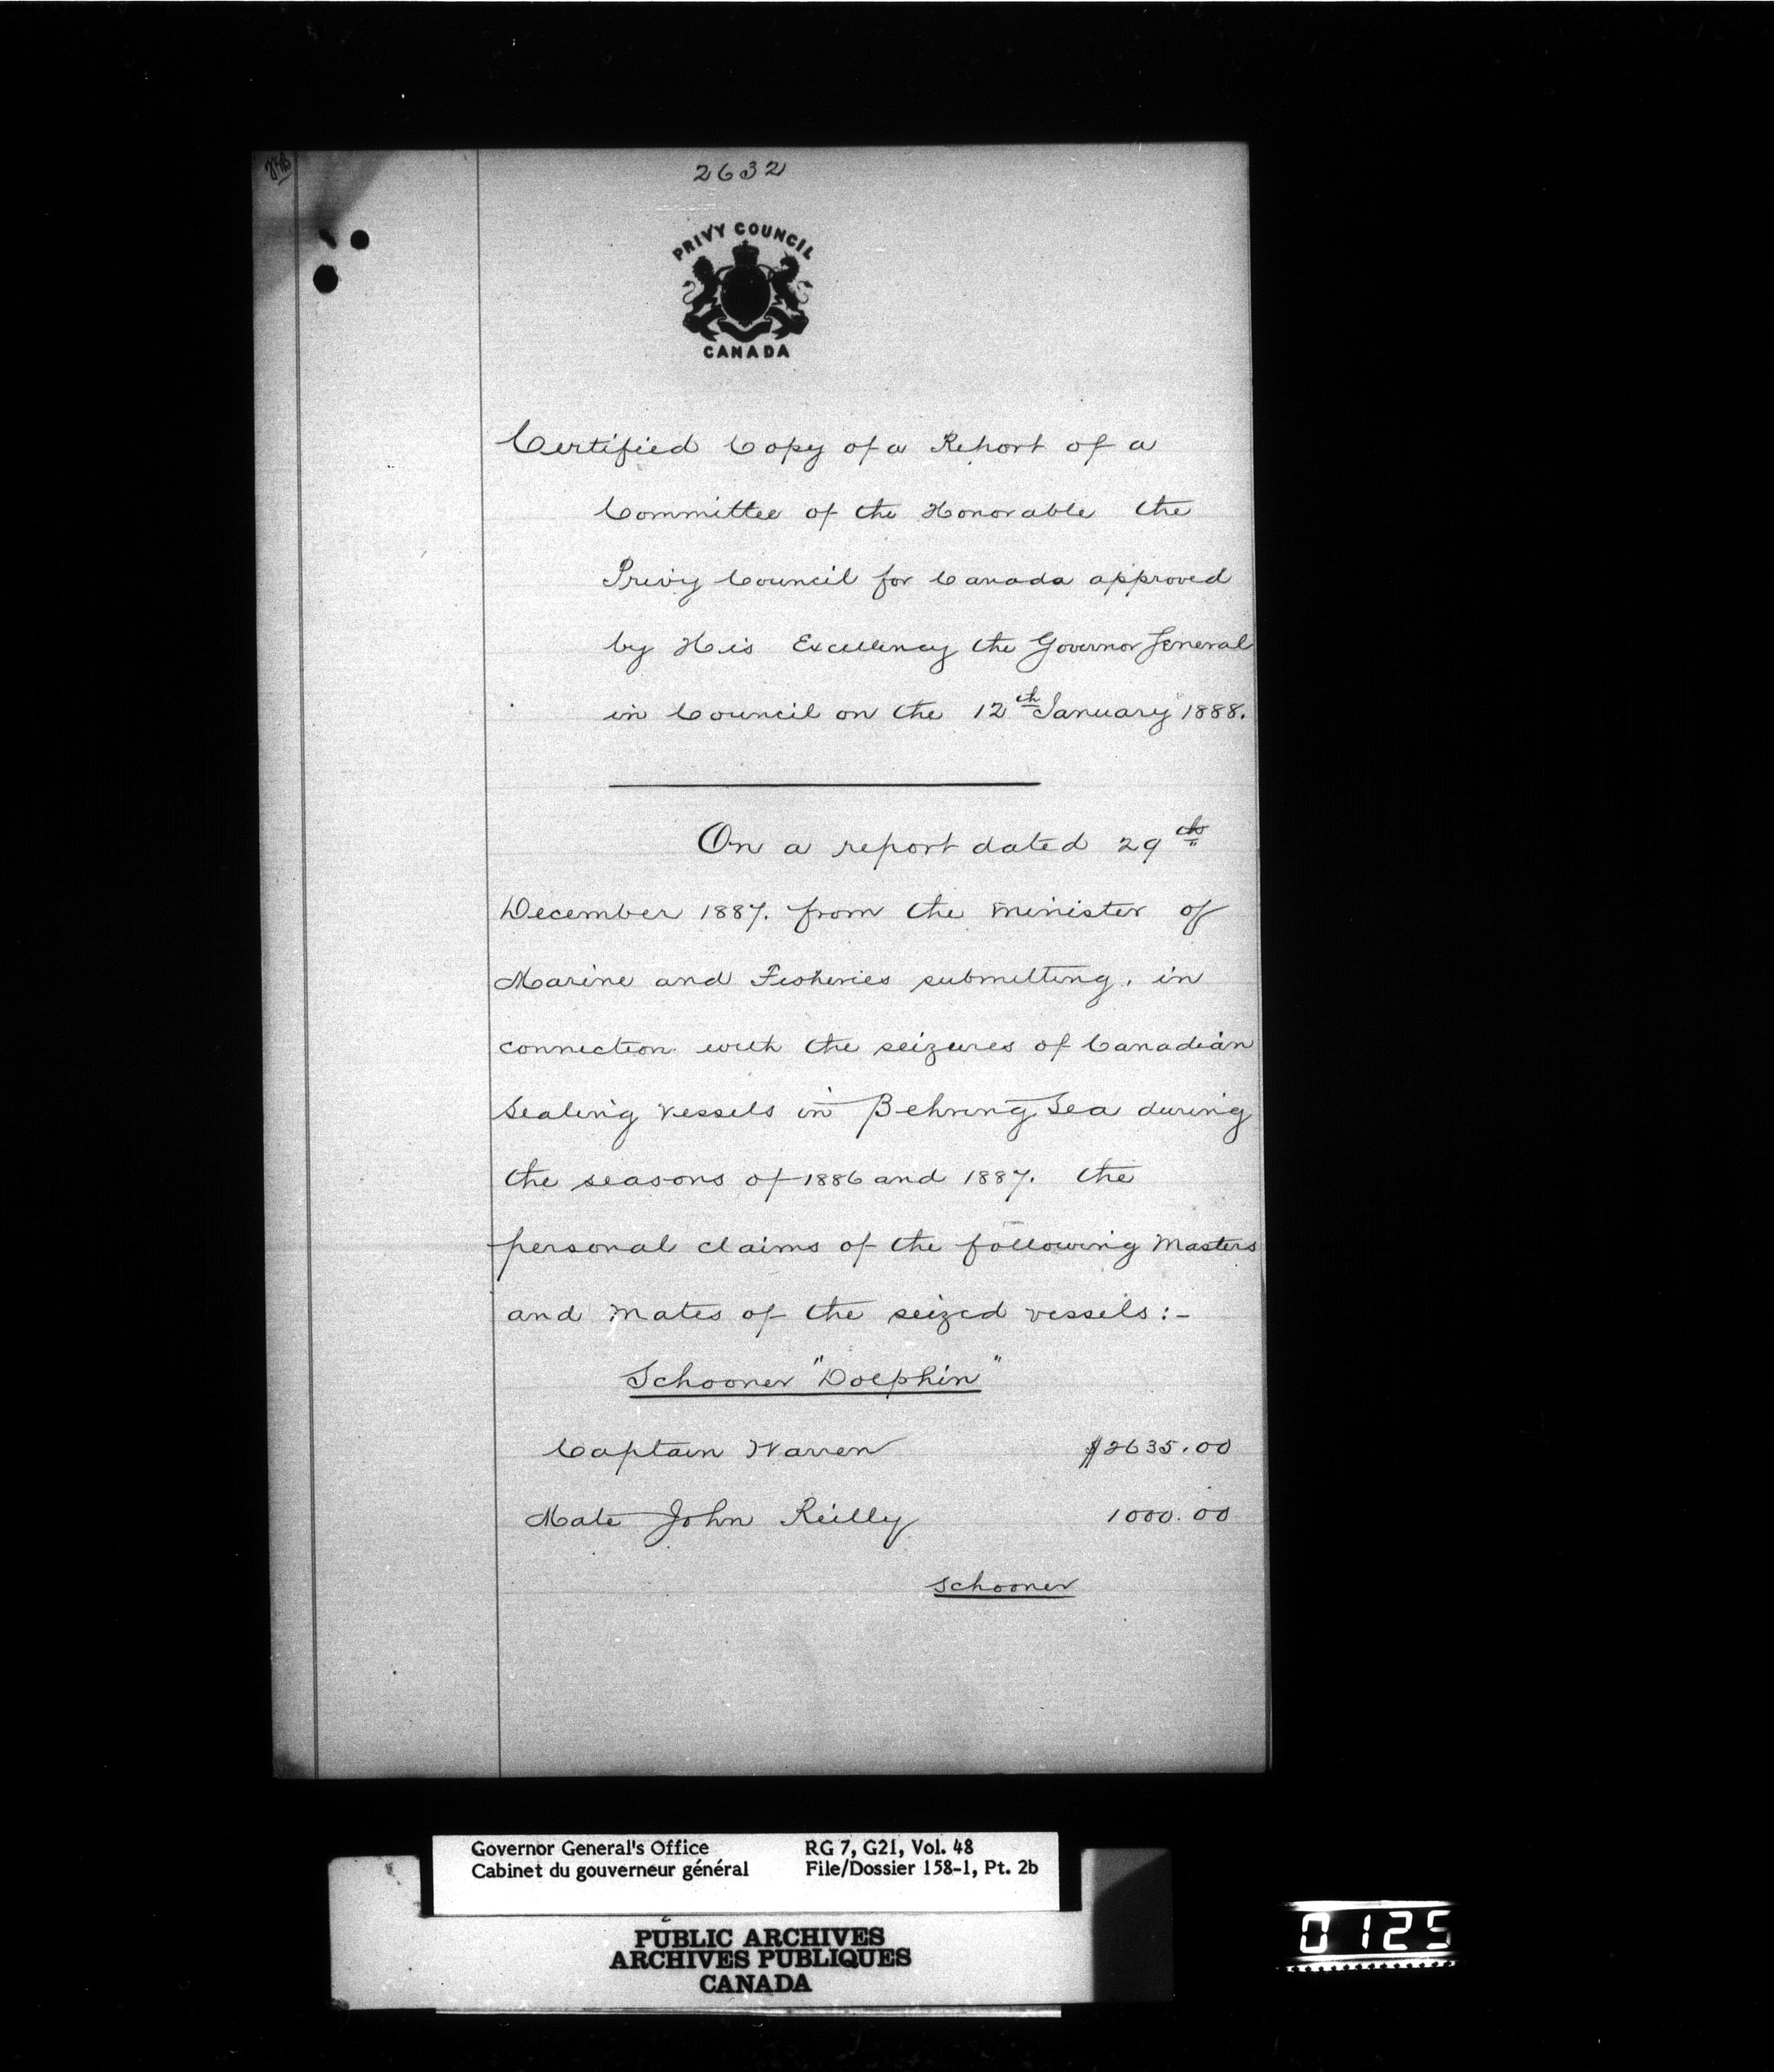 2632
PRIVY COUNCIL
CANADA
Certified Copy of a Report of a
Committee of the Honorable the
Privy Council for Canada approved
by His Excellency the Governor General
in Council on the 12th January 1888.
On a report dated 29th
December 1887. from the Minister of
Marine and Fisheries submitting, in
connection with the seizures of Canadian
Sealing vessels in Behring Sea during
the seasons of 1886 and 1887. the
personal claims of the following Masters
and Mates of the seized vessels:-
Schooner "Dolphin"
Captain Warren $2635.00
Mate John Reilly 1000.00
Schooner
Governor General's Office RG 7, G21, Vol. 48
Cabinet du gouverneur général File/Dossier 158-1, Pt. 2b
PUBLIC ARCHIVES
ARCHIVES PUBLIQUES
CANADA
0125